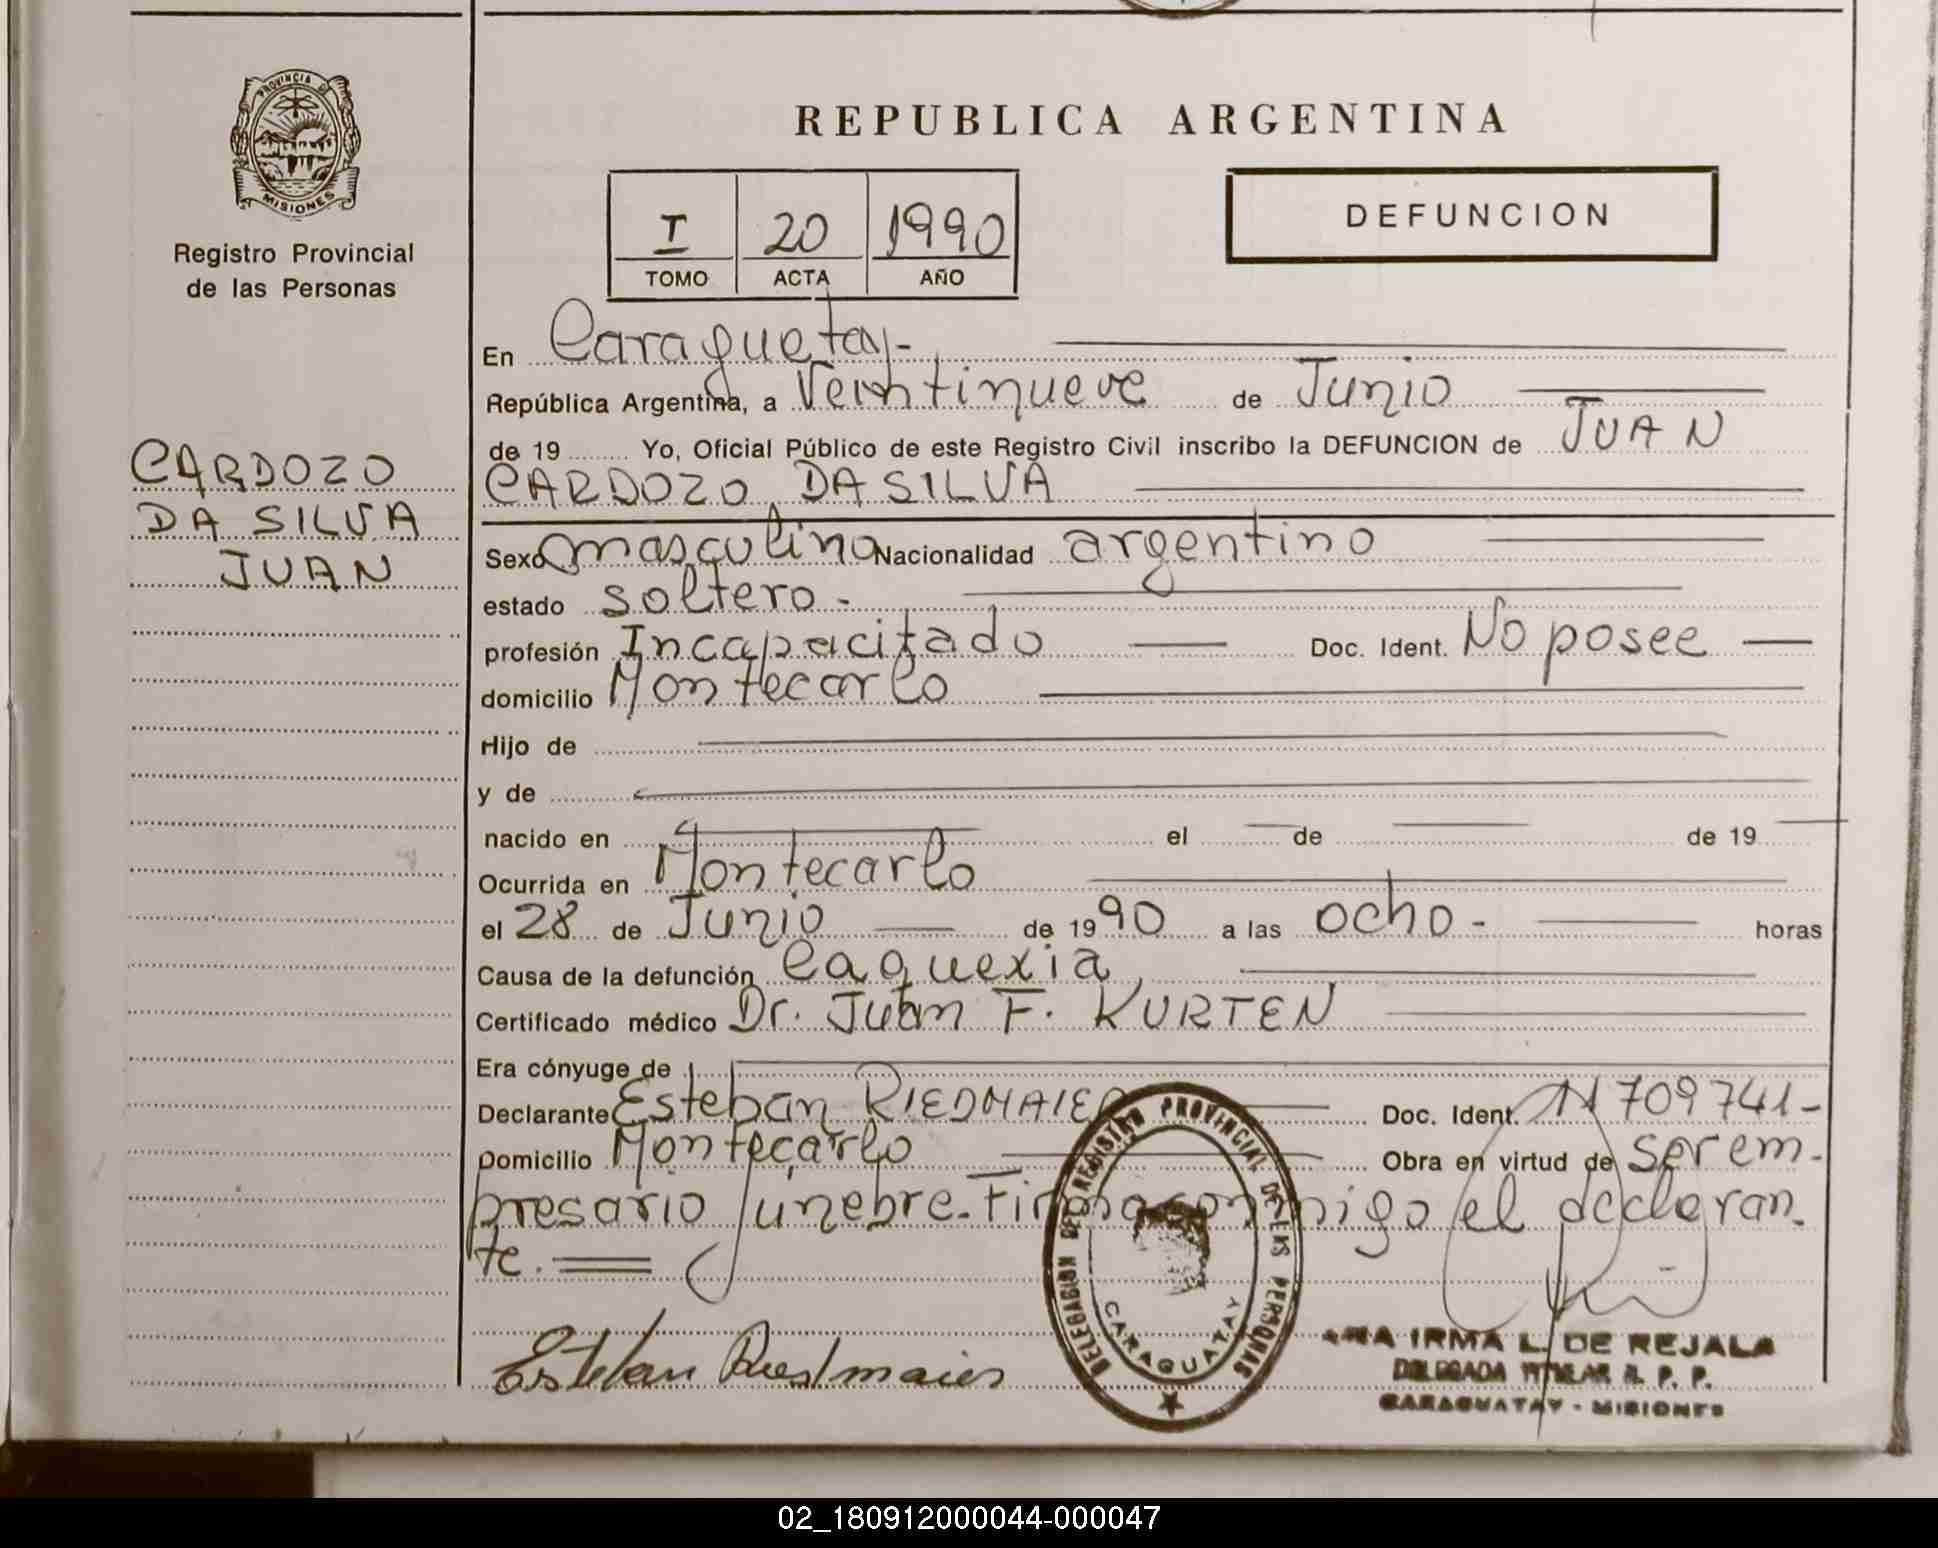 PROVINCIA DE
MISIONES
Registro Provincial
de las Personas
CARDOZO
DA SILVA
JUAN
REPUBLICA ARGENTINA
I 20 1990
TOMO ACTA AÑO
DEFUNCION
En Caraguatay-
República Argentina, a Veintinueve de Junio
de 19 ........ Yo, Oficial Público de este Registro Civil inscribo la DEFUNCION de JUAN
CARDOZO DA SILVA
Sexo masculino Nacionalidad argentino
estado soltero.-
profesión Incapacitado Doc. Ident. No posee
domicilio Montecarlo
Hijo de
y de
nacido en el de de 19
Ocurrida en Montecarlo
el 28 de Junio de 1990 a las ocho- horas
Causa de la defunción Caquexia
Certificado médico Dr. Juan F. KURTEN
Era cónyuge de
Declarante Esteban RIEDMAIER Doc. Ident. 11709741-
Domicilio Montecarlo Obra en virtud de ser em-
presario fúnebre.Firma conmigo el declaran-
te.
Esteban Riedmaier
DELEGACION DEL REGISTRO PROVINCIAL DE LAS PERSONAS
CARAGUATAY
IRMA L. DE REJALA
DELEGADA TITULAR R. P. P.
CARAGUATAY - MISIONES
02_180912000044-000047